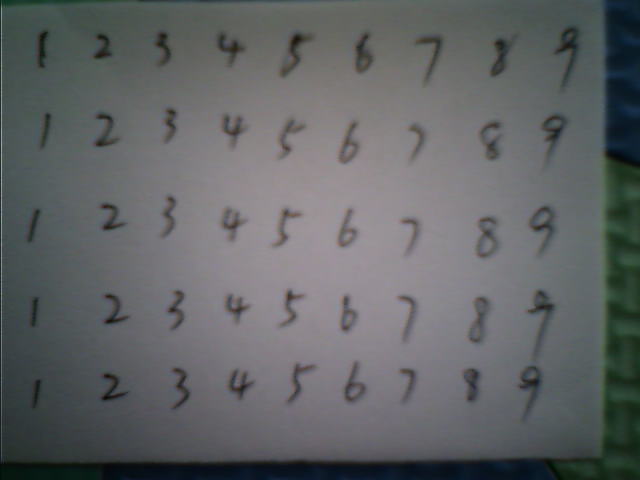 1 2 3 4 5 6 7 8 9
1 2 3 4 5 6 7 8 9
1 2 3 4 5 6 7 8 9
1 2 3 4 5 6 7 8 9
1 2 3 4 5 6 7 8 9